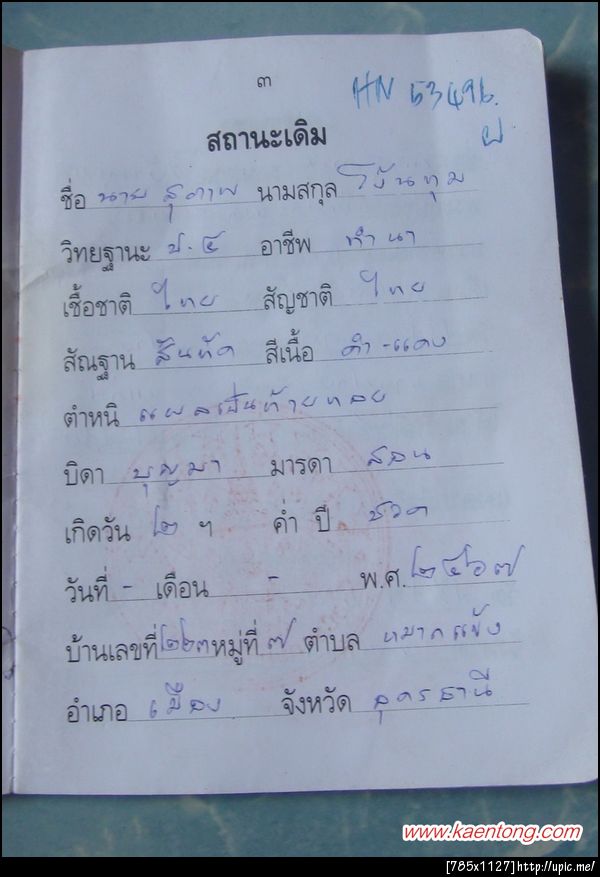 ๓
HN 53496.
สถานะเดิม
ชื่อ นาย สุภาพ นามสกุล
วิทยฐานะ ป.๔ อาชีพ ทำนา
เชื้อชาติ ไทย สัญชาติ ไทย
สัณฐาน สันทัด สีเนื้อ ดำ-แดง
ตำหนิ แผลเป็นท้ายทอย
บิดา บุญมา มารดา สอน
เกิดวัน ๒ ฯ ค่ำ ปี ชวด
วันที่ - เดือน - พ.ศ. ๒๔๖๗
บ้านเลขที่ ๒๒๓ หมู่ที่ ๗ ตำบล หมากแข้ง
อำเภอ เมือง จังหวัด อุดรธานี
www.kaentong.com
[785x1127]http://upic.me/